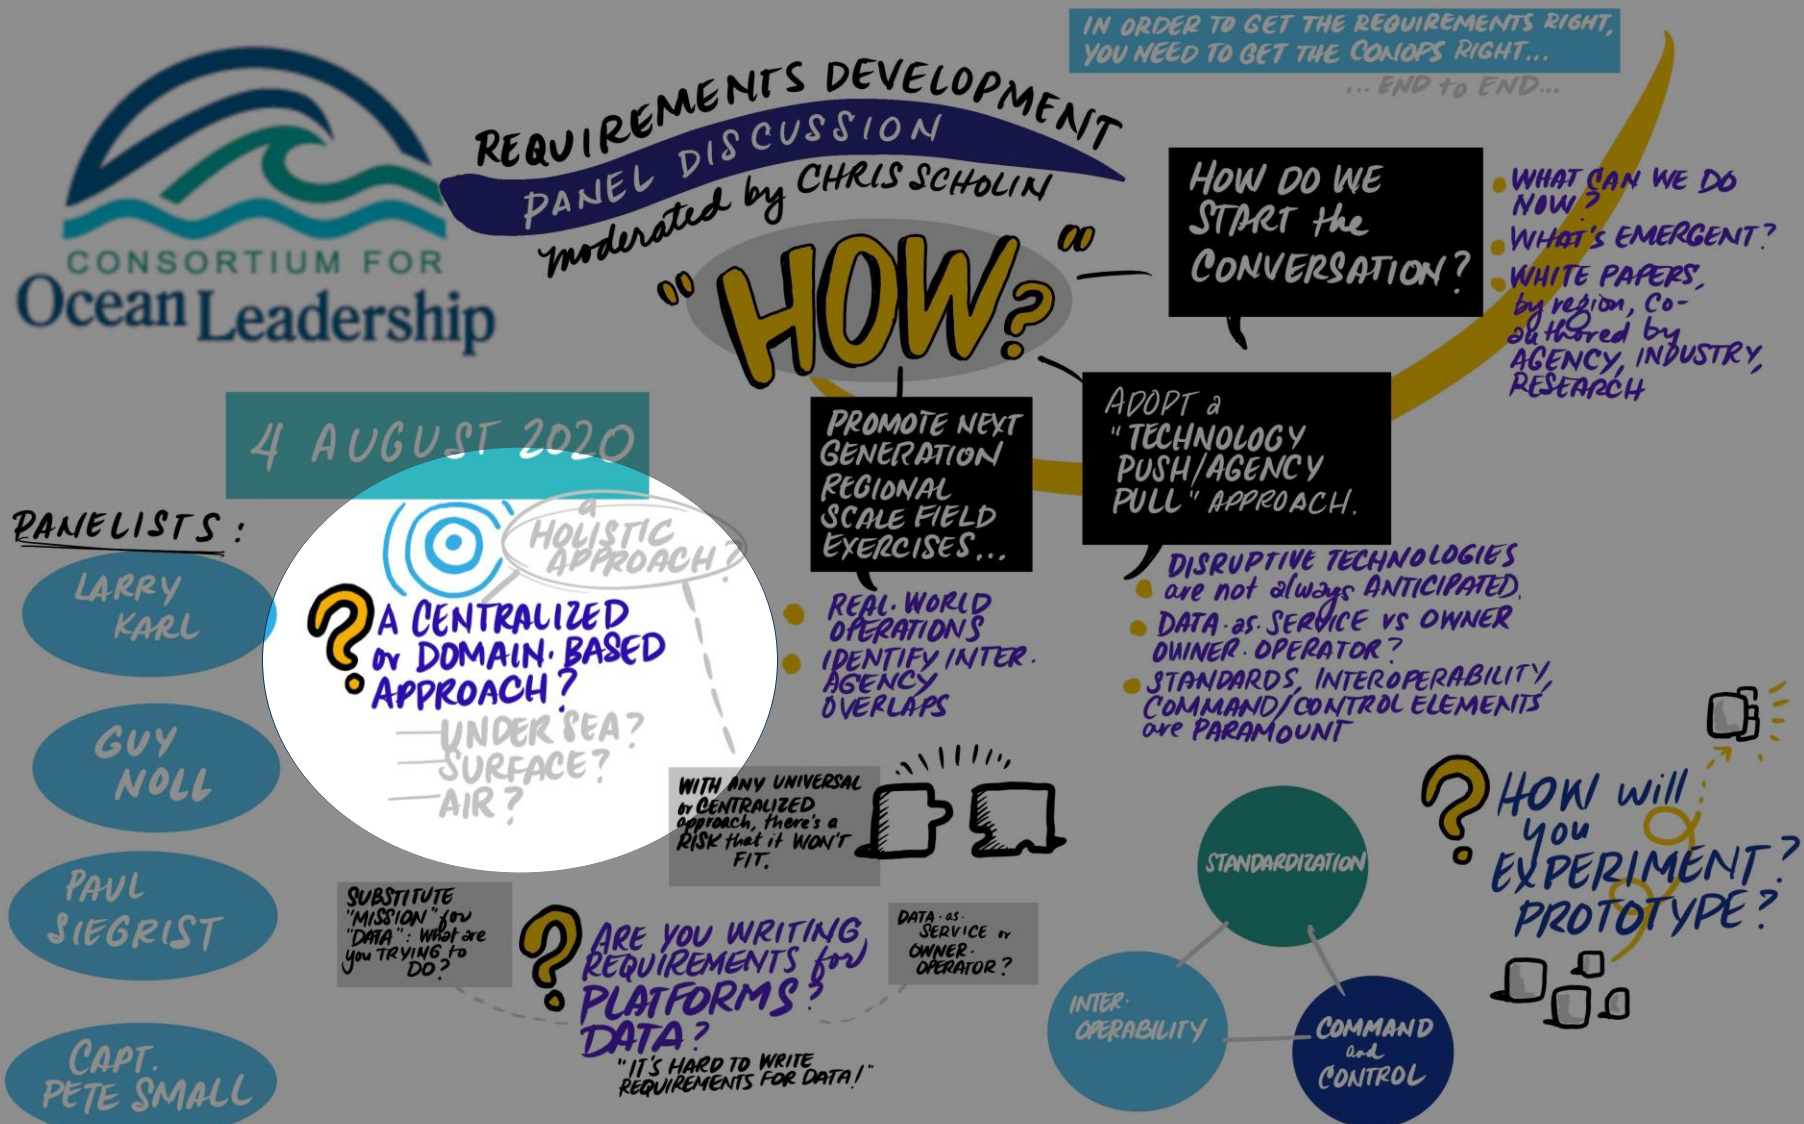 CONSORTIUM FOR
Ocean Leadership
REQUIREMENTS DEVELOPMENT
PANEL DISCUSSION
moderated by CHRIS SCHOLIN
IN ORDER TO GET THE REQUIREMENTS RIGHT,
YOU NEED TO GET THE CONOPS RIGHT...
... END to END...
"HOW?"
HOW DO WE
START the
CONVERSATION?
WHAT CAN WE DO
NOW?
WHAT'S EMERGENT?
WHITE PAPERS,
by region, Co-
authored by
AGENCY, INDUSTRY,
RESEARCH
4 AUGUST 2020
PANELISTS:
LARRY
KARL
GUY
NOLL
PAUL
SIEGRIST
CAPT.
PETE SMALL
a
HOLISTIC
APPROACH?
? A CENTRALIZED
or DOMAIN-BASED
APPROACH?
UNDER SEA?
SURFACE?
AIR?
PROMOTE NEXT
GENERATION
REGIONAL
SCALE FIELD
EXERCISES...
REAL-WORLD
OPERATIONS
IDENTIFY INTER-
AGENCY
OVERLAPS
ADOPT a
"TECHNOLOGY
PUSH/AGENCY
PULL" APPROACH.
DISRUPTIVE TECHNOLOGIES
are not always ANTICIPATED.
DATA-as-SERVICE VS OWNER
OWNER-OPERATOR?
STANDARDS, INTEROPERABILITY,
COMMAND/CONTROL ELEMENTS
are PARAMOUNT
WITH ANY UNIVERSAL
or CENTRALIZED
approach, there's a
RISK that it WON'T
FIT.
SUBSTITUTE
"MISSION" for
"DATA": What are
you TRYING to
DO?
? ARE YOU WRITING
REQUIREMENTS for
PLATFORMS?
DATA?
"IT'S HARD TO WRITE
REQUIREMENTS FOR DATA!"
DATA-as-
SERVICE or
OWNER-
OPERATOR?
STANDARDIZATION
INTER-
OPERABILITY
COMMAND
and
CONTROL
? HOW will
you
EXPERIMENT?
PROTOTYPE?